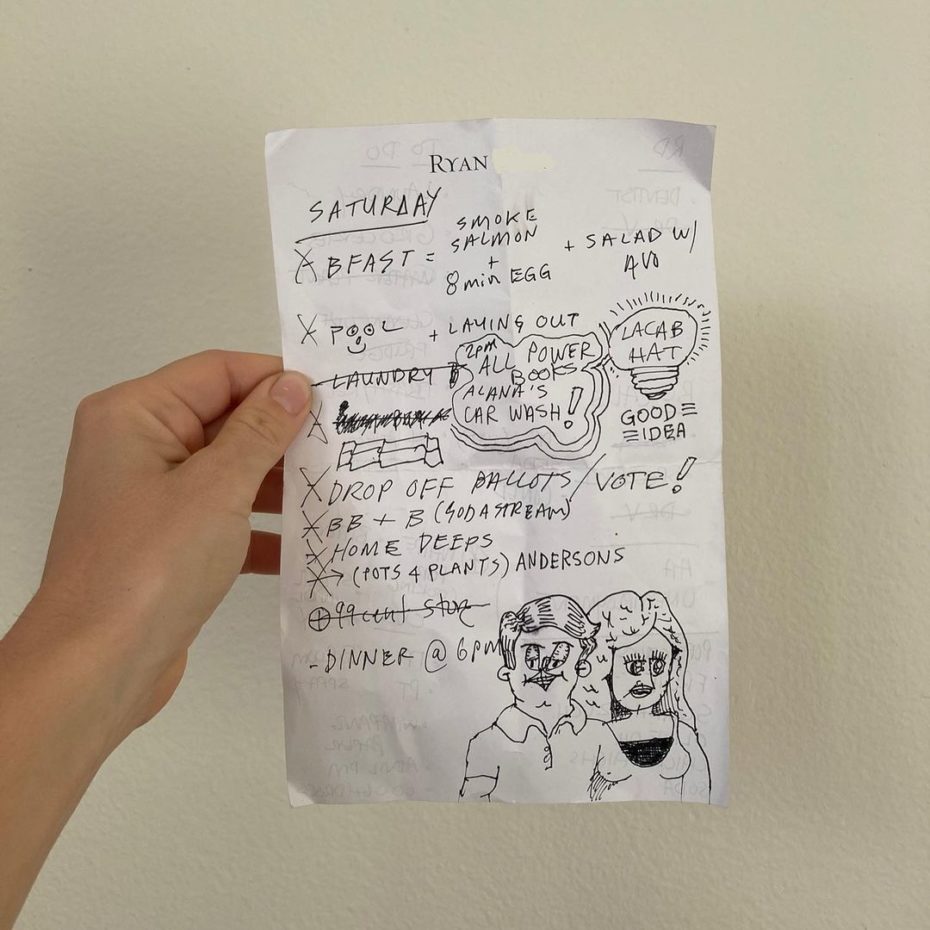 RYAN
SATURDAY
BFAST = SMOKE SALMON + 8 min EGG + SALAD W/ AVO
POOL + LAYING OUT
LAUNDRY
2PM ALL POWER
BOOKS
ALANA'S
CAR WASH!
LACAB
HAT
GOOD
IDEA
DROP OFF BALLOTS / VOTE!
BB + B (SODASTREAM)
HOME DEEPS
→ (POTS 4 PLANTS) ANDERSONS
99 cent store
- DINNER @ 6PM